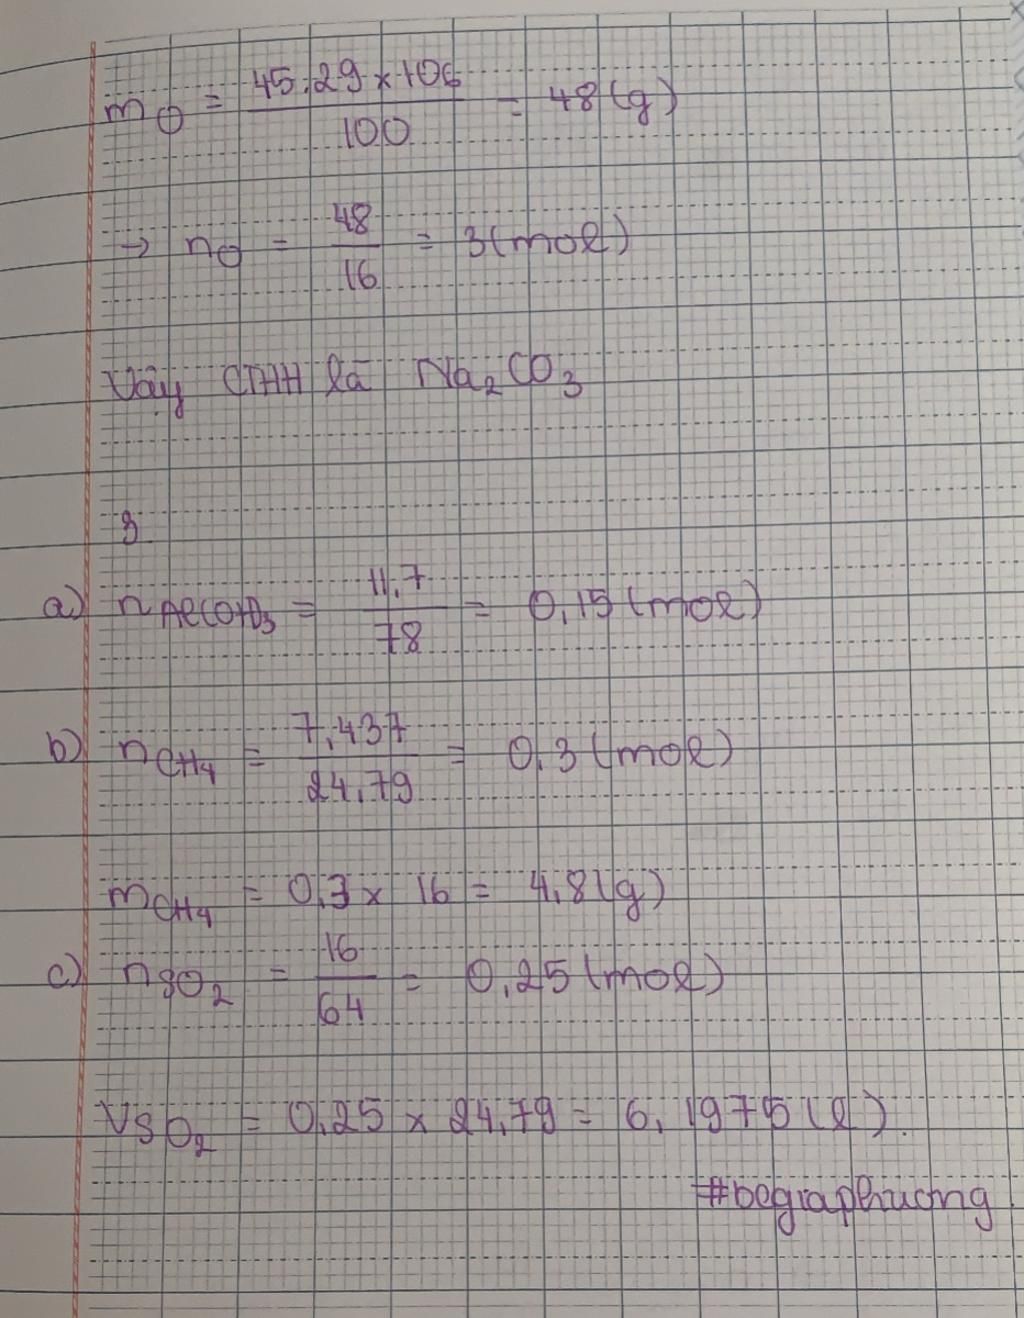 mO = 45,29 x 106 / 100 = 48 (g)
→ nO = 48 / 16 = 3 (mol)
Vậy CTHH là Na2CO3
8
a) nAl(OH)3 = 11,7 / 78 = 0,15 (mol)
b) nCH4 = 7,437 / 24,79 = 0,3 (mol)
mCH4 = 0,3 x 16 = 4,8 (g)
c) nSO2 = 16 / 64 = 0,25 (mol)
VSO2 = 0,25 x 24,79 = 6,1975 (l).
#begiaphuong